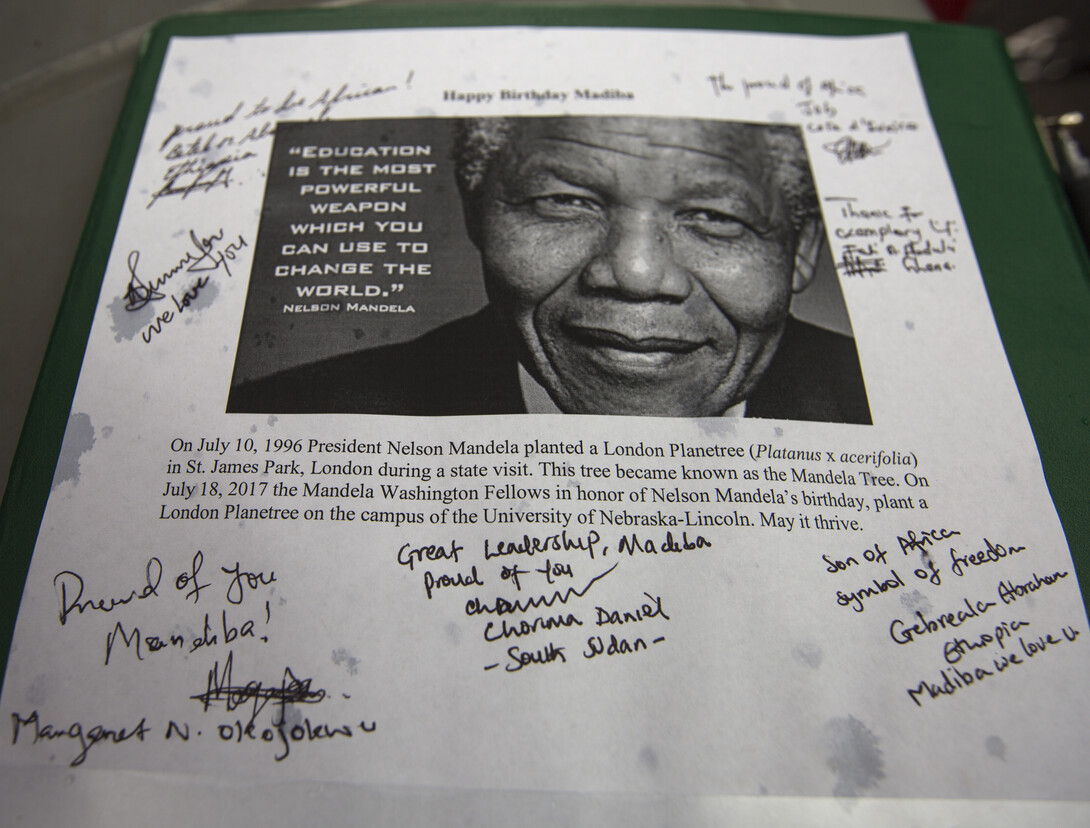 Happy Birthday Madiba
proud to be African!
Ethiopia
The proud of Africa
Cote d'Ivoire
"EDUCATION
IS THE MOST
POWERFUL
WEAPON
WHICH YOU
CAN USE TO
CHANGE THE
WORLD."
NELSON MANDELA
Thanks for
exemplary
Ghana.
you
we love
On July 10, 1996 President Nelson Mandela planted a London Planetree (Platanus x acerifolia)
in St. James Park, London during a state visit. This tree became known as the Mandela Tree. On
July 18, 2017 the Mandela Washington Fellows in honor of Nelson Mandela's birthday, plant a
London Planetree on the campus of the University of Nebraska-Lincoln. May it thrive.
Proud of you
Mandiba!
Margaret N. Okojokwu
Great Leadership, Madiba
Proud of You
Chorima Daniel
- South Sudan -
Son of Africa
symbol of freedom
Gebreala Abraham
Ethiopia
Madiba we love u